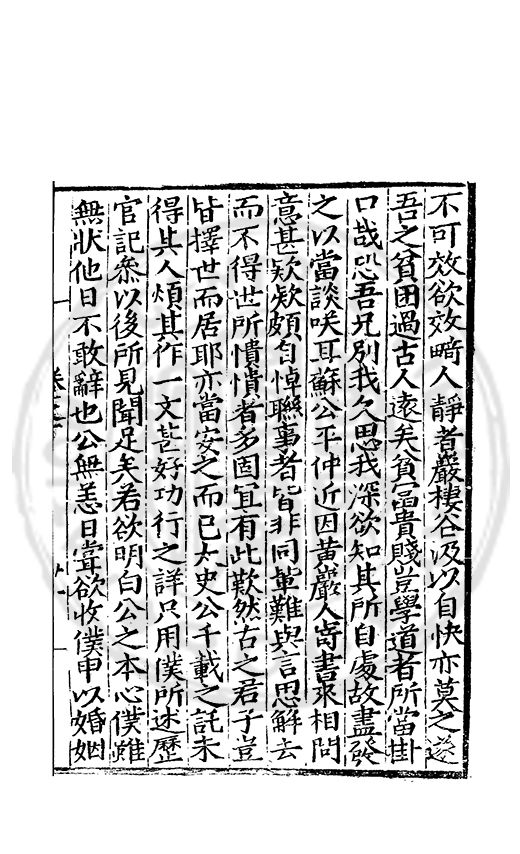 不可效欲效畸人靜者巖棲谷汲以自快亦莫之遂
吾之貧困過古人遠矣貧富貴賤豈學道者所當掛
口哉恐吾兄别我久思我深欲知其所自處故盡發
之以當談咲耳蘇公平仲近因黃巖人寄書來相問
意甚欵欵頗自悼聯事者皆非同軰難與言思解去
而不得世所憒憒者多固冝有此歎然古之君子豈
皆擇世而居耶亦當安之而已太史公千載之託未
得其人煩其作一文甚好功行之詳只用僕所述歷
官記叅以後所見聞足矣若欲明白公之本心僕雖
無狀他日不敢辭也公無恙日甞欲收僕申以婚姻